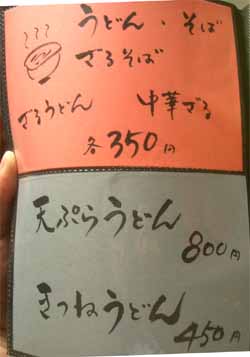 うどん、そば
ざるそば
ざるうどん 中華ざる
各350円
天ぷらうどん
800円
きつねうどん
450円